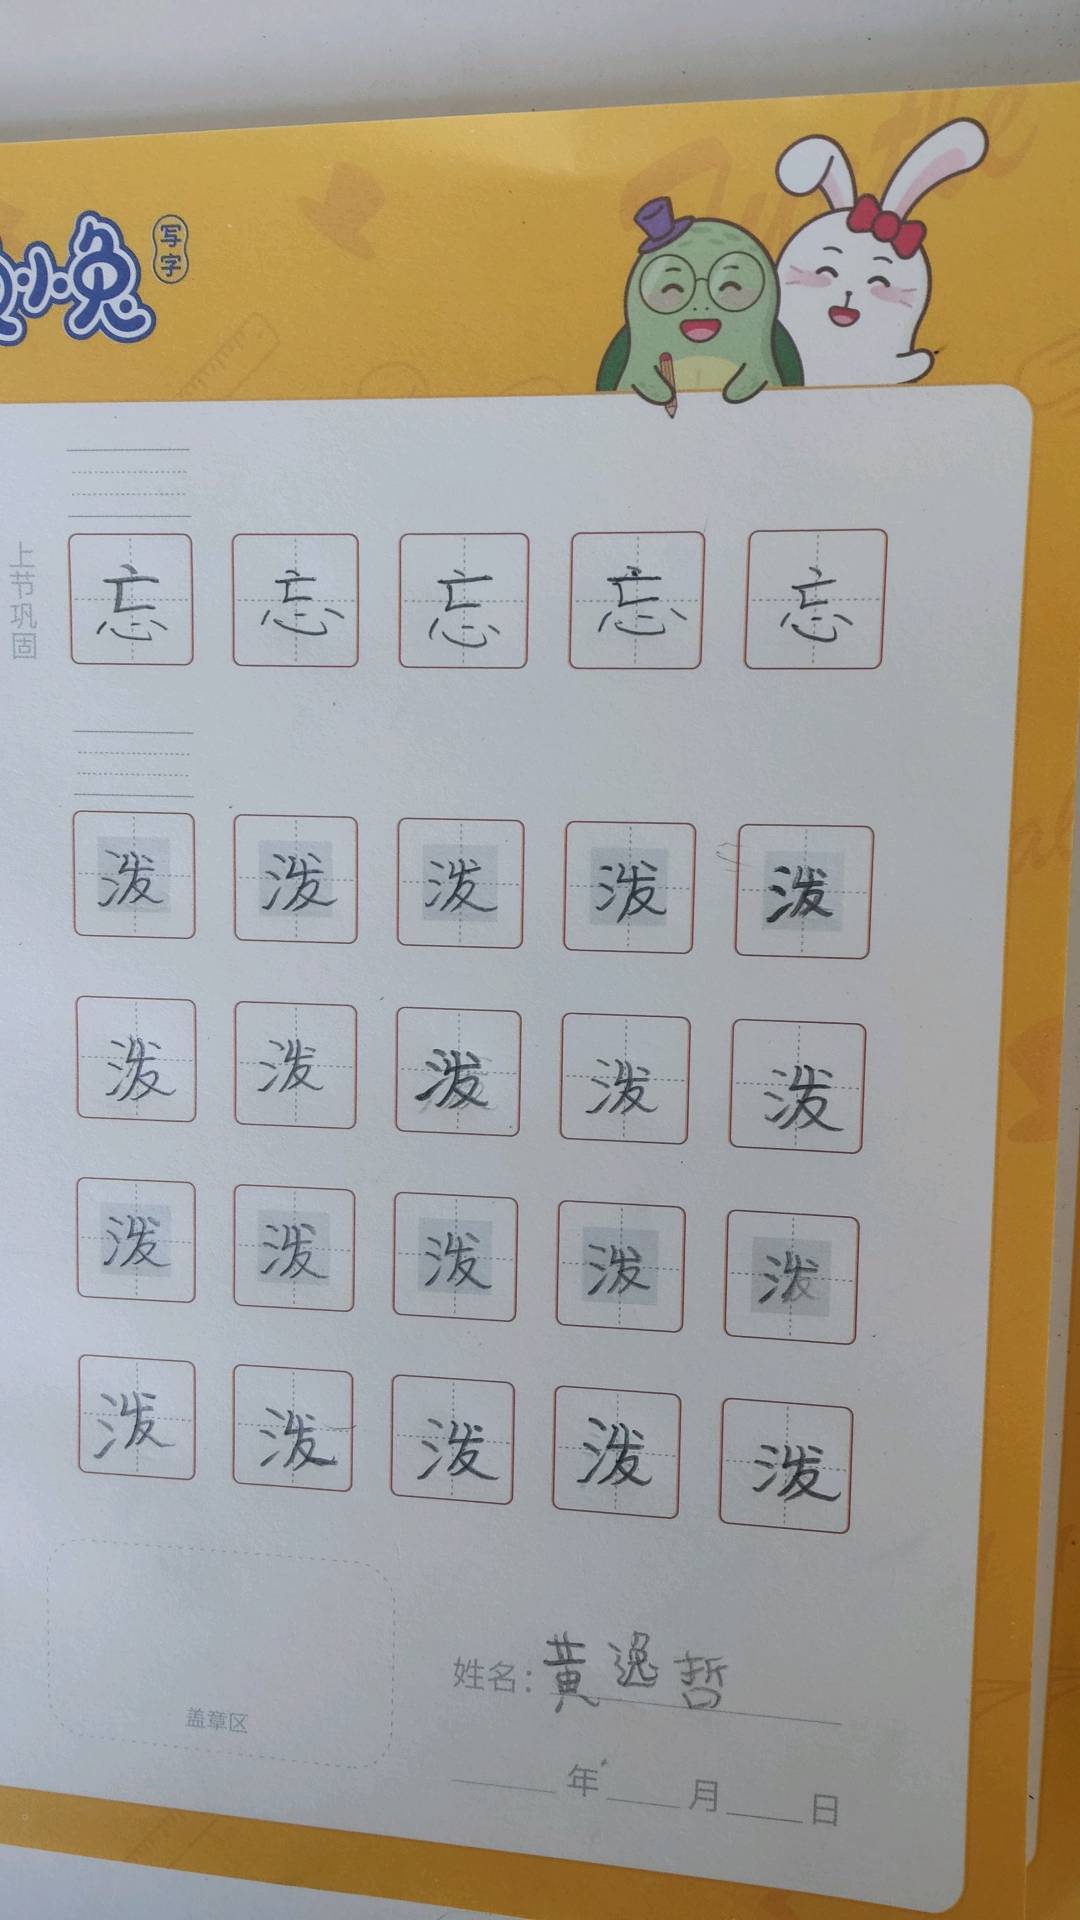 小兔
写字
上节巩固
忘 忘 忘 忘 忘
泼 泼 泼 泼 泼
泼 泼 泼 泼 泼
泼 泼 泼 泼 泼
泼 泼 泼 泼 泼
姓名：黄逸哲
盖章区
年 月 日